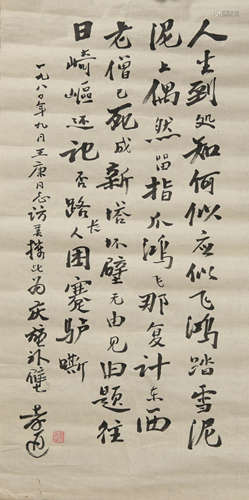 人生到处知何似应似飞鸿踏雪泥
泥上偶然留指爪鸿飞那复计东西
老僧已死成新塔坏壁无由见旧题往
日崎嶇还记否路长人困蹇驴嘶
一九八〇年九月王康同志访美携此为补壁 孝通